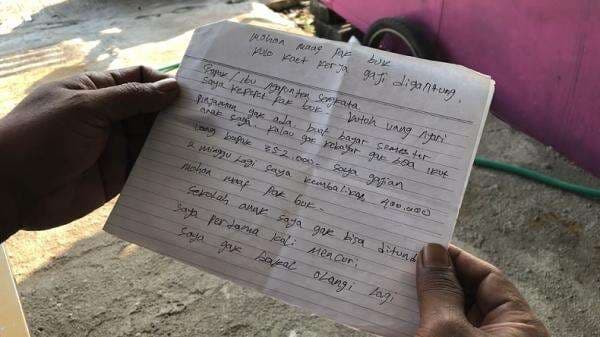 mohon maaf pak buk
kulo kuet kerja gaji digantung,
Bapak/ibu ngapunten Sengkata
saya kepepet pak buk. butoh uang nyari
pinjaman gak ada, buat bayar semester
anak saya. kalau gak kebayar gak bisa ikut
uang bapak 352.000.- saya gajian
2 minggu lagi saya kembalikan 400.000
mohon maaf pak buk.
sekolah anak saya gak bisa ditunda
saya pertama kali mencuri
saya gak bakal olangi lagi